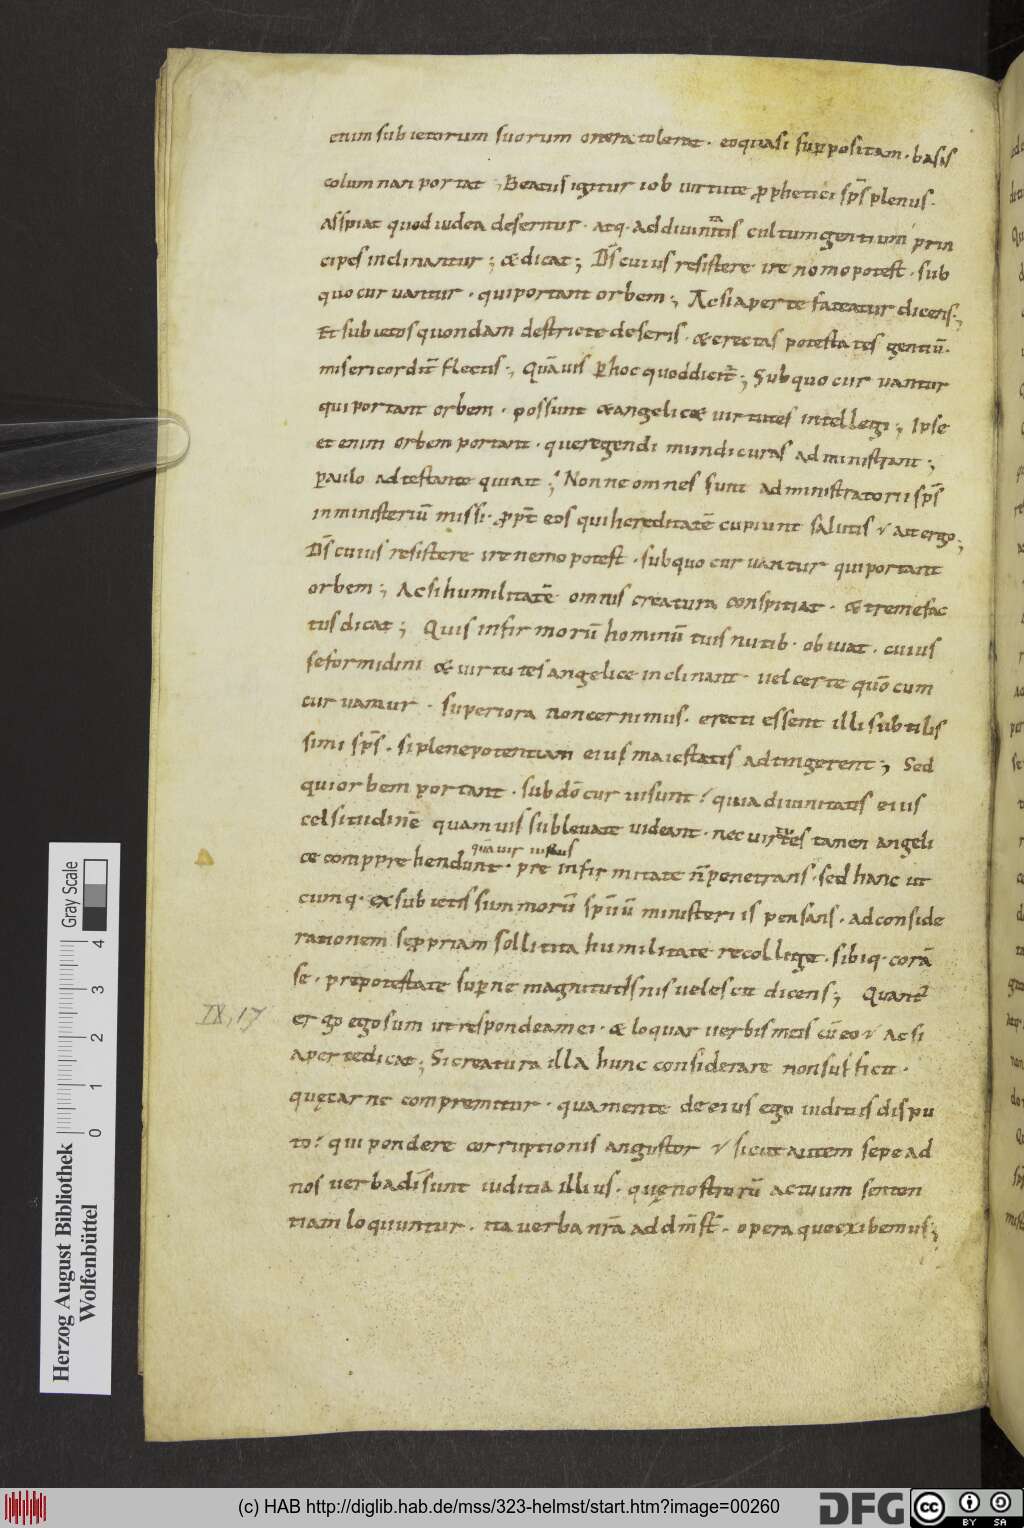 enim subiectorum suorum onera tolerat · eo quasi suppositam · basis
columnam portat ; Beatus igitur iob virtute ꝓphetici sp̄s plenus ·
Asspiat quod iudea deseritur · atq· ad divinitatis cultum gentium prin
cipes inclinantur ; & dicat ; D̄s cuius resistere ire nemo potest · sub
quo curvantur · qui portant orbem ; Ac si aperte fateatur dicens ;
Et subiectos quondam destricte deseris · & erectas potestates gentiū ·
misericordit̄ flectis ; Quāvis ꝑ hoc quod dicit̄ ; Sub quo curvantur
qui portant orbem · possunt & angelicæ virtutes intellegi ; Ipse
et enim orbem portant · que regendi mundi curas administrant ;
paulo adtestante qui ait ; Nonne omnes sunt administratorii sp̄s
in ministeriū missi · ꝓpt̄ eos qui hereditatē cupiunt salutis ? ait ergo ;
D̄s cuius resistere ire nemo potest · sub quo curvantur qui portant
orbem ; Ac si humilitatē omnis creatura conspitiat · & tremefac
tus dicat ; Quis infirmorū hominū tuis nutib· obviat · cuius
se formidini & virtutes angelice inclinant · vel certe quō cum
curvamur · superiora non cernimus · erecti essent illi subtilis
simi sp̄s · si plene potentiam eius maiestatis adtingerent ; Sed
qui orbem portant · sub dō curvi sunt ? quia divinitatis eius
celsitudinē quamvis sublevate videant · nec virtutes tamen angeli
ce comprehendunt · pre infirmitate n̄ penetrans · sed hanc ut
cumq· ex subiectis summorū sp̄uū ministeriis pensans · ad conside
rationem se ꝓpriam sollicita humilitate recollegit · sibiq· corā
se · pre potestate supernę magnitudinis vilescit dicens ; Quant̄
ergo ego sum ut respondeam ei · & loquar verbis meis cū eo ? Ac si
aperte dicat ; Si creatura illa hunc considerare non sufficit ·
quę carne compremitur · qua mente de eius ego iuditiis dispu
to ? qui pondere corruptionis angustor ? sicut autem sepe ad
nos verba dī sunt iuditia illius · quę nostrorū actuum senten
tiam loquuntur · ita verba nr̄a ad dm̄ st̄ · opera que exibemus ;
IX, 17
Gray Scale
0 1 2 3 4
Herzog August Bibliothek
Wolfenbüttel
(c) HAB http://diglib.hab.de/mss/323-helmst/start.htm?image=00260
DFG
cc BY SA